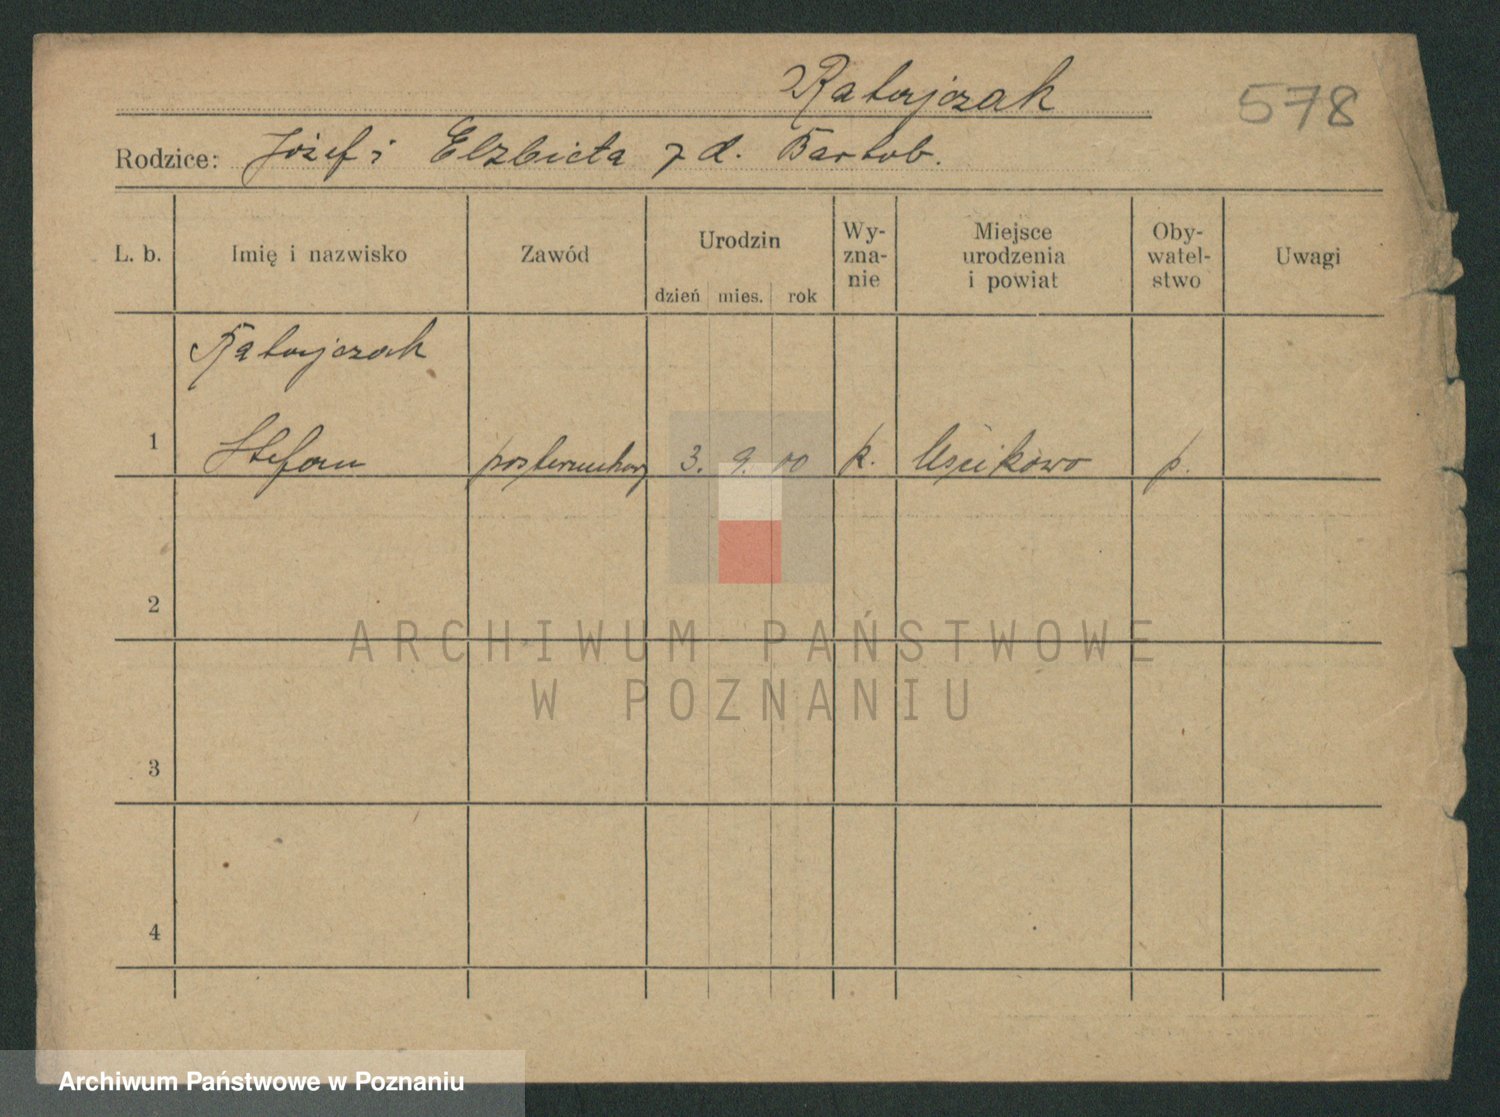 Ratajczak 578
Rodzice: Józef i Elżbieta z d. Bartob.
L. b. Imię i nazwisko Zawód Urodzin dzień mies. rok Wy- zna- nie Miejsce urodzenia i powiat Oby- watel- stwo Uwagi
Ratajczak
1 Stefan posterunkowy 3. 9. 00 k. Uścikowo p.
2
ARCHIWUM PAŃSTWOWE
W POZNANIU
3
4
Archiwum Państwowe w Poznaniu